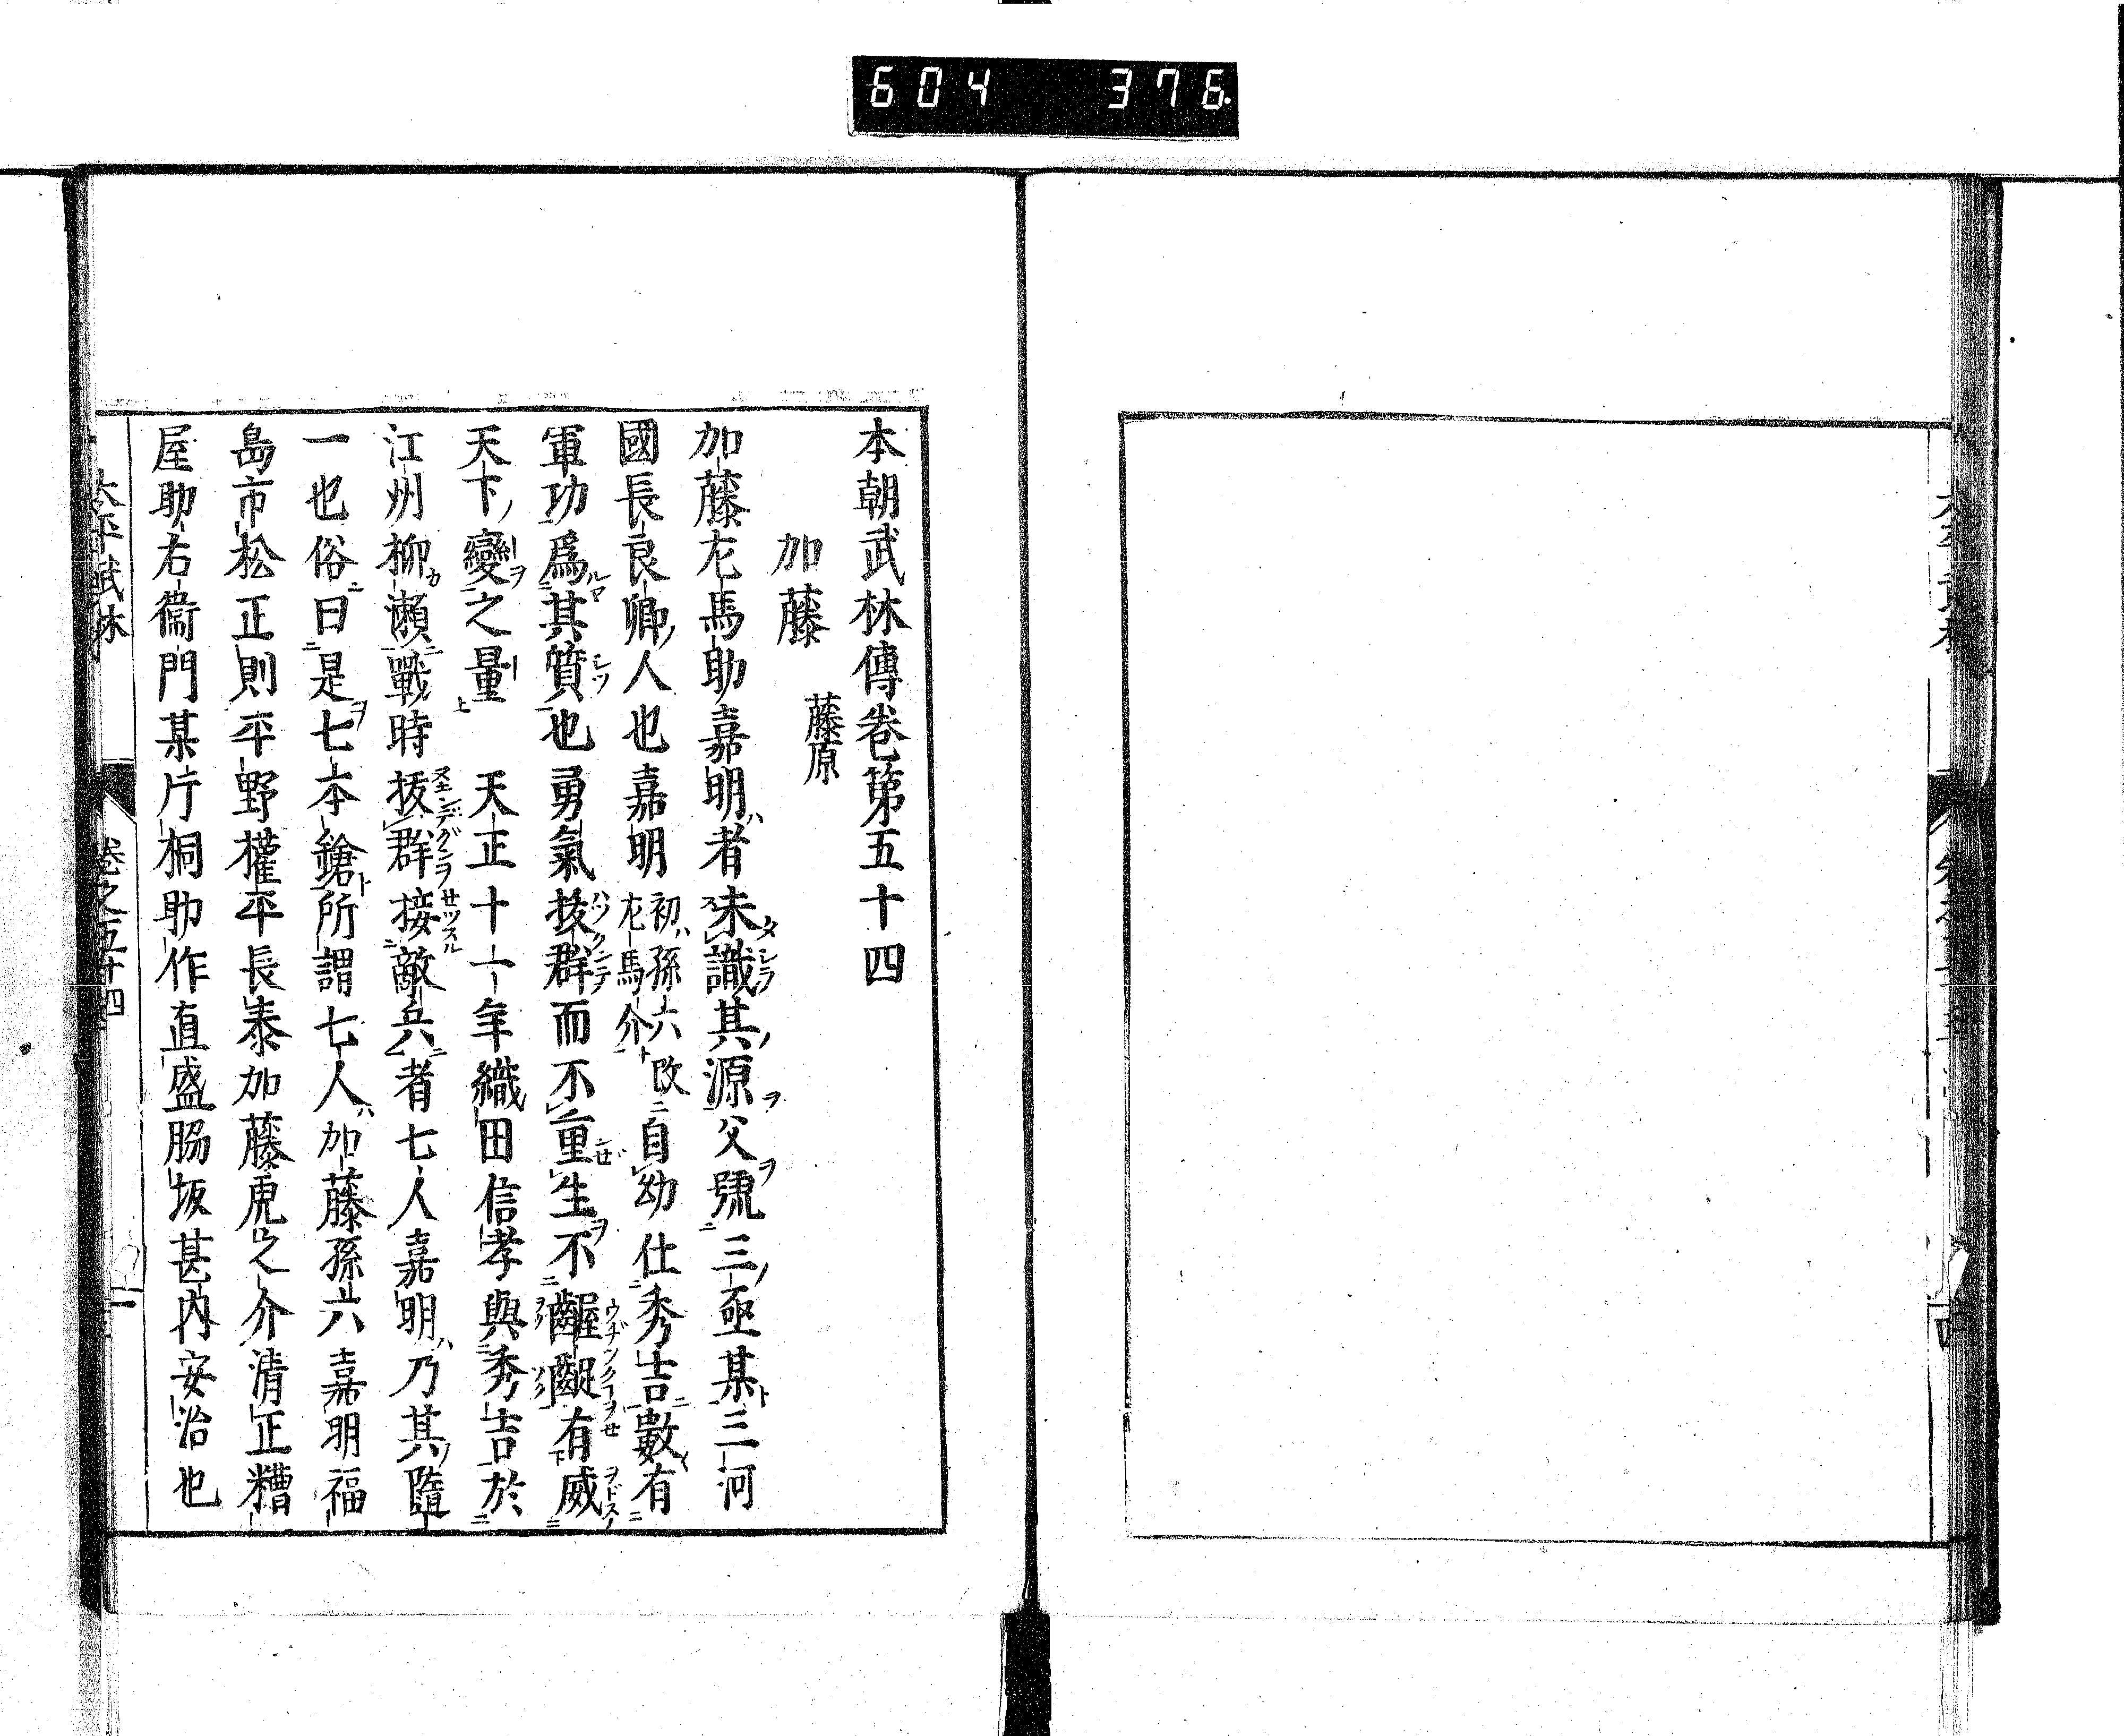 604 376
本朝武林傳卷第五十四
加藤 藤原
加藤左馬助嘉明者未識其源父號三亟某三河
國長良卿人也嘉明初孫六改左馬介自幼仕秀吉數有
軍功爲其質也勇氣拔群而不重生不齷齪有威
天下變之量 天正十一年織田信孝與秀吉於
江州柳瀬戰時拔群接敵兵者七人嘉明乃其隨
一也俗曰是七本鎗所謂七人加藤孫六嘉明福
島市松正則平野權平長泰加藤虎之介清正糟
屋助右衞門某片桐助作直盛脇坂甚内安治也
卷之五十四